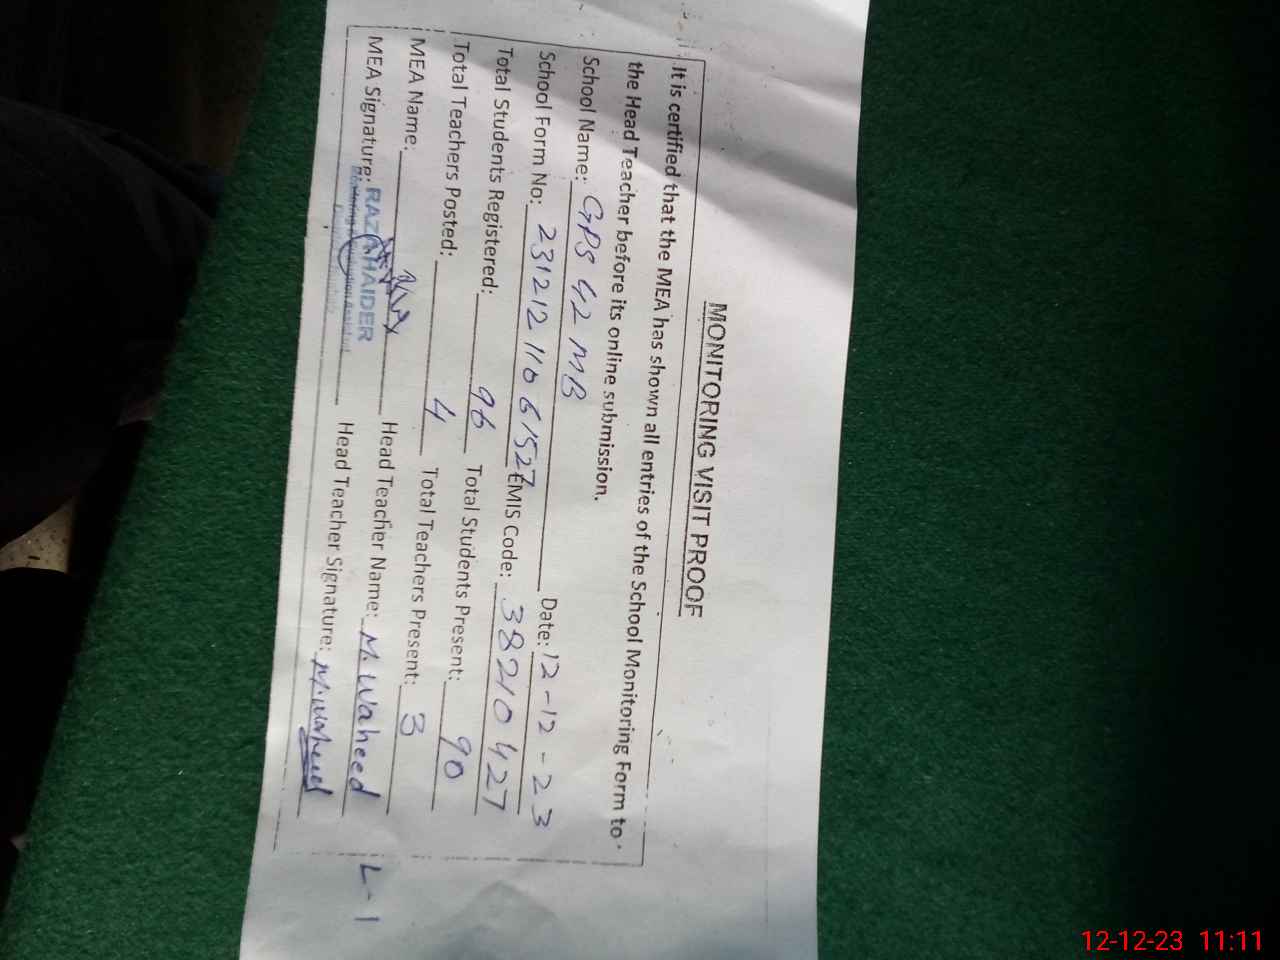 MONITORING VISIT PROOF
It is certified that the MEA has shown all entries of the School Monitoring Form to
the Head Teacher before its online submission.
School Name: GPS 42 MB Date: 12-12-23
School Form No: 23121211061527 EMIS Code: 38210427
Total Students Registered: 96 Total Students Present: 90
Total Teachers Posted: 4 Total Teachers Present: 3
MEA Name: Head Teacher Name: M. Waheed L-1
MEA Signature: RAZA HAIDER Head Teacher Signature: M. Waheed
Monitoring Assistant
12-12-23 11:11